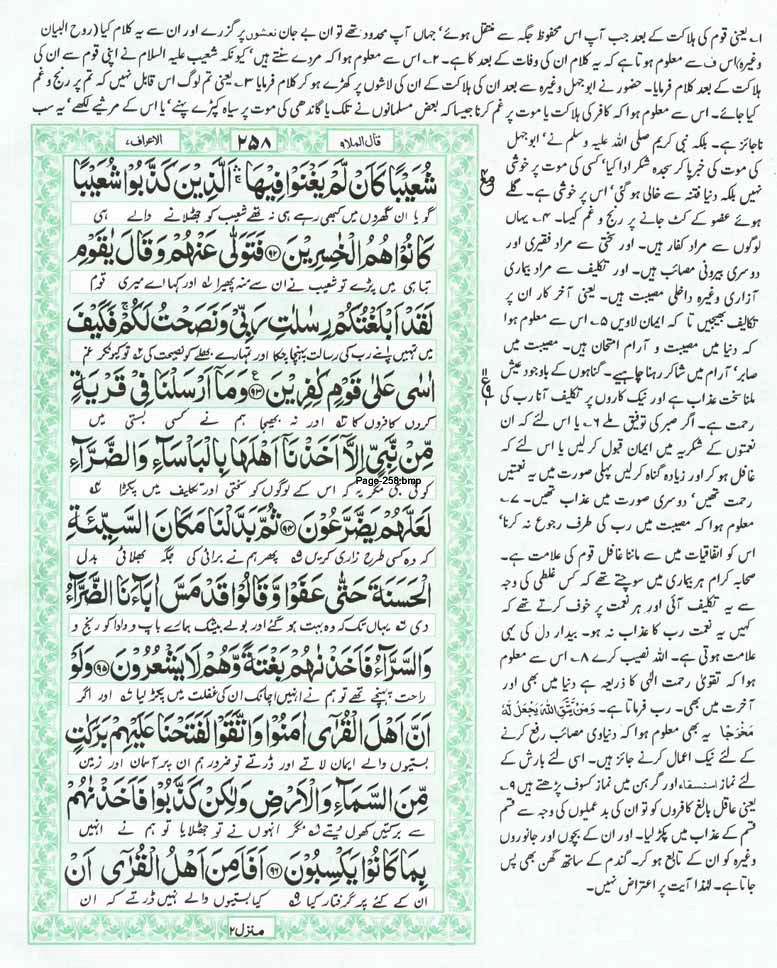 ۱۔ یعنی قوم کی ہلاکت کے بعد جب آپ اس محفوظ جگہ سے منتقل ہوئے، جہاں آپ محدود تھے تو ان بے جان نعشوں پر گزرے اور ان سے یہ کلام کیا (روح البیان
وغیرہ) اس ف سے معلوم ہوتا ہے کہ یہ کلام ان کی وفات کے بعد کا ہے۔ ۲۔ اس سے معلوم ہوا کہ مردے سنتے ہیں، کیونکہ شعیب علیہ السلام نے اپنی قوم سے ان کی
ہلاکت کے بعد کلام فرمایا۔ حضور نے ابوجہل وغیرہ سے بعد ان کی ہلاکت کے ان کی لاشوں پر کھڑے ہو کر کلام فرمایا ۳۔ یعنی تم لوگ اس قابل نہیں کہ تم پر رنج و غم
کیا جائے۔ اس سے معلوم ہوا کہ کافر کی ہلاکت یا موت پر غم کرنا جیسا کہ بعض مسلمانوں نے تلک یا گاندھی کی موت پر سیاہ کپڑے پہنے، یا اس کے مرثیے لکھے، یہ سب
ناجائز ہے۔ بلکہ نبی کریم صلی اللہ علیہ وسلم نے، ابوجہل
کی موت کی خبر پا کر سجدہ شکر ادا کیا، کسی کی موت پر خوشی
نہیں بلکہ دنیا فتنہ سے خالی ہو گئی، اس پر خوشی ہے۔ گلے
ہوئے عضو کے کٹ جانے پر رنج و غم کیسا۔ ۴۔ یہاں
لوگوں سے مراد کفار ہیں۔ اور سختی سے مراد فقیری اور
دوسری بیرونی مصائب ہیں۔ اور تکلیف سے مراد بیماری
آزاری وغیرہ داخلی مصیبت ہیں۔ یعنی آخر کار ان پر
تکالیف بھیجیں تا کہ ایمان لاویں ۵۔ اس سے معلوم ہوا
کہ دنیا میں مصیبت و آرام امتحان ہیں۔ مصیبت میں
صابر، آرام میں شاکر رہنا چاہیے۔ گناہوں کے باوجود عیش
ملنا سخت عذاب ہے اور نیک کاروں پر تکلیف آنا رب کی
رحمت ہے۔ اگر صبر کی توفیق ملے ۶۔ یا اس لئے کہ ان
نعمتوں کے شکریہ میں ایمان قبول کر لیں یا اس لئے کہ
غافل ہو کر اور زیادہ گناہ کر لیں پہلی صورت میں یہ نعمتیں
رحمت تھیں، دوسری صورت میں عذاب تھیں۔ ۷۔
معلوم ہوا کہ مصیبت میں رب کی طرف رجوع نہ کرنا،
اس کو اتفاقیات میں سے ماننا غافل قوم کی علامت ہے۔
صحابہ کرام ہر بیماری میں سوچتے تھے کہ کس غلطی کی وجہ
سے یہ تکلیف آئی اور ہر نعمت پر خوف کرتے تھے کہ
کہیں یہ نعمت رب کا عذاب نہ ہو۔ بیدار دل کی یہی
علامت ہوتی ہے۔ اللہ نصیب کرے ۸۔ اس سے معلوم
ہوا کہ تقویٰ رحمت الٰہی کا ذریعہ ہے دنیا میں بھی اور
آخرت میں بھی۔ رب فرماتا ہے۔ وَمَنْ يَّتَّقِ اللّٰهَ يَجْعَلْ لَّهٗ
مَخْرَجًا یہ بھی معلوم ہوا کہ دنیاوی مصائب رفع کرنے
کے لئے نیک اعمال کرنے جائز ہیں۔ اسی لئے بارش کے
لئے نماز استسقاء اور گرہن میں نماز کسوف پڑھتے ہیں ۹۔
یعنی عاقل بالغ کافروں کو تو ان کی بد عملیوں کی وجہ سے قسم
قسم کے عذاب میں پکڑ لیا۔ اور ان کے بچوں اور جانوروں
وغیرہ کو ان کے تابع ہو کر۔ گندم کے ساتھ گھن بھی پس
جاتا ہے۔ لہٰذا آیت پر اعتراض نہیں۔
قال الملا ۹ ۲۵۸ الاعراف ۷
شُعَيْبًا كَاَنْ لَّمْ يَغْنَوْا فِيْهَا ۚۛ اَلَّذِيْنَ كَذَّبُوْا شُعَيْبًا
گویا ان گھروں میں کبھی رہے ہی نہ تھے شعیب کو جھٹلانے والے ہی
كَانُوْا هُمُ الْخٰسِرِيْنَ ۹۲ فَتَوَلّٰى عَنْهُمْ وَقَالَ يٰقَوْمِ
تباہی میں پڑے تو شعیب نے ان سے منہ پھیرا ۱ اور کہا اے میری قوم
لَقَدْ اَبْلَغْتُكُمْ رِسٰلٰتِ رَبِّيْ وَنَصَحْتُ لَكُمْ ۚ فَكَيْفَ
میں تمہیں اپنے رب کی رسالت پہنچا چکا اور تمہارے بھلے کو نصیحت کی ۲ تو کیونکر غم
اٰسٰى عَلٰى قَوْمٍ كٰفِرِيْنَ ۹۳ وَمَاۤ اَرْسَلْنَا فِيْ قَرْيَةٍ
کروں کافروں کا ۳ اور نہ بھیجا ہم نے کسی بستی میں
مِّنْ نَّبِيٍّ اِلَّاۤ اَخَذْنَاۤ اَهْلَهَا بِالْبَاْسَآءِ وَالضَّرَّآءِ
کوئی نبی مگر یہ کہ اس کے لوگوں کو سختی اور تکلیف میں پکڑا ۴
Page-258.bmp
لَعَلَّهُمْ يَضَّرَّعُوْنَ ۹۴ ثُمَّ بَدَّلْنَا مَكَانَ السَّيِّئَةِ
کہ وہ کسی طرح زاری کریں ۵ پھر ہم نے برائی کی جگہ بھلائی بدل
الْحَسَنَةَ حَتّٰى عَفَوْا وَّقَالُوْا قَدْ مَسَّ اٰبَآءَنَا الضَّرَّآءُ
دی ۶ یہاں تک کہ وہ بہت ہو گئے اور بولے بیشک ہمارے باپ و دادا کو رنج و
وَالسَّرَّآءُ فَاَخَذْنٰهُمْ بَغْتَةً وَّهُمْ لَا يَشْعُرُوْنَ ۹۵ وَلَوْ
راحت پہنچے تھے تو ہم نے انہیں اچانک ان کی غفلت میں پکڑ لیا ۷ اور اگر
اَنَّ اَهْلَ الْقُرٰۤى اٰمَنُوْا وَاتَّقَوْا لَفَتَحْنَا عَلَيْهِمْ بَرَكٰتٍ
بستیوں والے ایمان لاتے اور ڈرتے تو ضرور ہم ان پر آسمان اور زمین
مِّنَ السَّمَآءِ وَالْاَرْضِ وَلٰكِنْ كَذَّبُوْا فَاَخَذْنٰهُمْ
سے برکتیں کھول دیتے ۸ مگر انہوں نے تو جھٹلایا تو ہم نے انہیں
بِمَا كَانُوْا يَكْسِبُوْنَ ۹۶ اَفَاَمِنَ اَهْلُ الْقُرٰۤى اَنْ
ان کے کئے پر گرفتار کیا ۹ کیا بستیوں والے نہیں ڈرتے کہ ان
منزل ۲